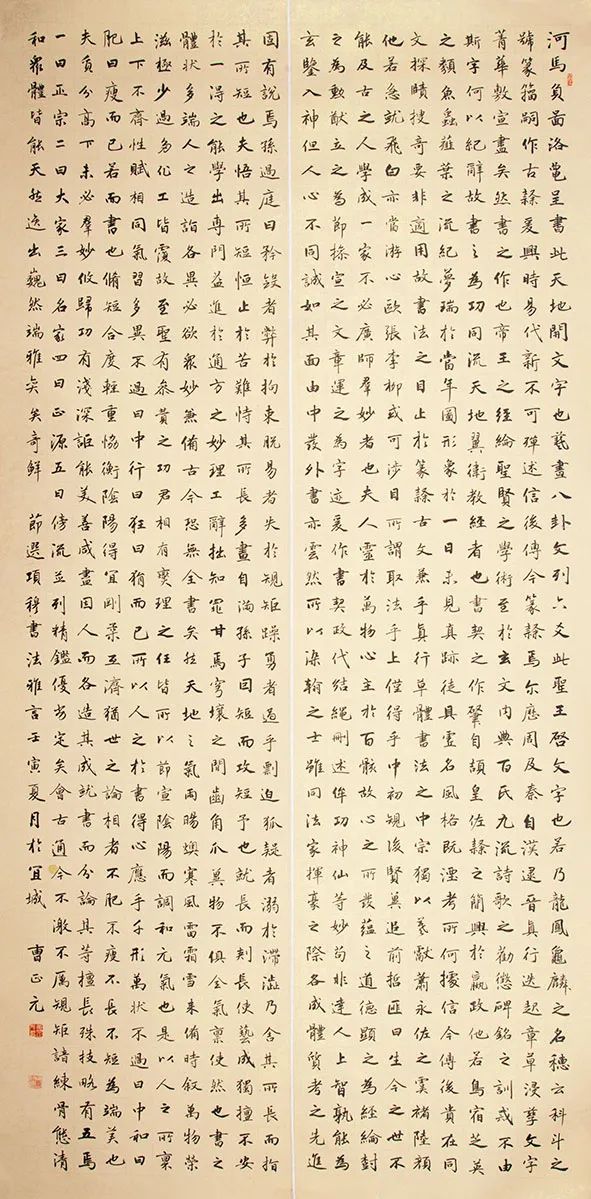 河馬負圖洛龜呈書此天地開文字也羲畫八卦文列六爻此聖王啓文字也若乃龍鳳龜麟之名穗云科斗之
號篆籀嗣作古隸爰興時易代新不可殫述信後傳今篆隸焉尔歷周及秦自漢逮晉真行迭起章草浸孳文字
菁華敷宣盡矣然書之作也帝王之經綸聖賢之學術至於玄文內典百氏九流詩歌之勸懲碑銘之訓戒不由
斯字何以紀辭故書之為功同流天地翼衛教經者也書契之作肇自頡皇佐隸之簡興於嬴政他若鳥宿芝英
之類魚蟲薤葉之流紀夢瑞於當年圖形象於一日未見真跡徒具虛名風格既湮考所何據信今傳後貴在同
文探賾搜奇要非適用故書法之目止於篆隸古文兼乎真行草體書法之中宗獨以羲獻蕭永佐之虞褚陸顏
他若急就飛白亦當游心歐張李柳或可涉目所謂取法乎上僅得乎中初規後賢冀追前哲匪曰生今之世不
能及古之人學成一家不必廣師羣妙者也夫人靈於萬物心主於百骸故心之所發蘊之道德顯之為經綸
之為勳猷立之為節操宣之文章運之為字迹爰作書契政代結繩刪述侔功神仙等妙苟非達人上智孰能為
玄鑒入神但人心不同誠如其面由中發外書亦雲然所以染翰之士雖同法家揮毫之際各成體質考之先進
固有說焉孫過庭曰矜斂者弊於拘束脫易者失於規矩躁勇者過乎剽迫狐疑者溺於滯澁乃舍其所長而指
其所短也夫悟其所短恒止於苦難恃其所長多畫自滿孫子因短而攻短予也就長而刺長使藝成獨擅不安
於一得之能學出專門益進於通方之妙理工辭拙知罪甘焉穹壤之間齒角爪翼物不俱全氣禀使然也書之
體狀多端人之造詣各異必欲眾妙兼備古今恐無全書矣然天地之氣雨暘燠寒風雷霜雪来備時叙萬物榮
滋極少過多化工皆覆故至聖有參贊之功君相有燮理之任皆所以節宣陰陽而調和元氣也是以人之所禀
上下不齊性賦相同氣習多異不過曰中行曰狂曰狷而已所以人之於書得心應手千形萬狀不過曰中和曰
肥曰瘦而已若而書也脩短合度輕重協衡陰陽得宜剛柔互濟猶世之論相者不肥不瘦不長不短為端美也
夫質分高下未必羣妙攸歸功有淺深詎能美善咸盡因人而各造其成就書而分論其等擅長殊技略有五焉
一曰正宗二曰大家三曰名家四曰正源五曰傍流並列精鑑優劣定矣會古通今不激不厲規矩諳練骨態清
和眾體皆能天然逸出巍然端雅矣矣奇鮮 節選項穆書法雅言壬寅夏月於宜城 曹正元